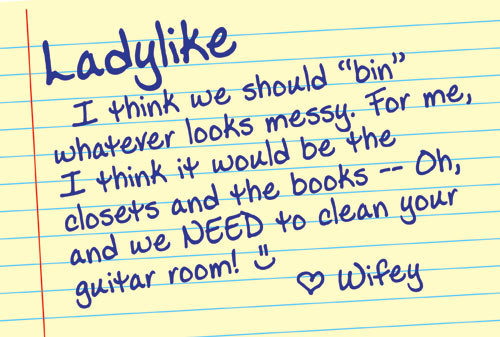 Ladylike
I think we should “bin”
whatever looks messy. For me,
I think it would be the
closets and the books -- Oh,
and we NEED to clean your
guitar room! :)
♡ Wifey